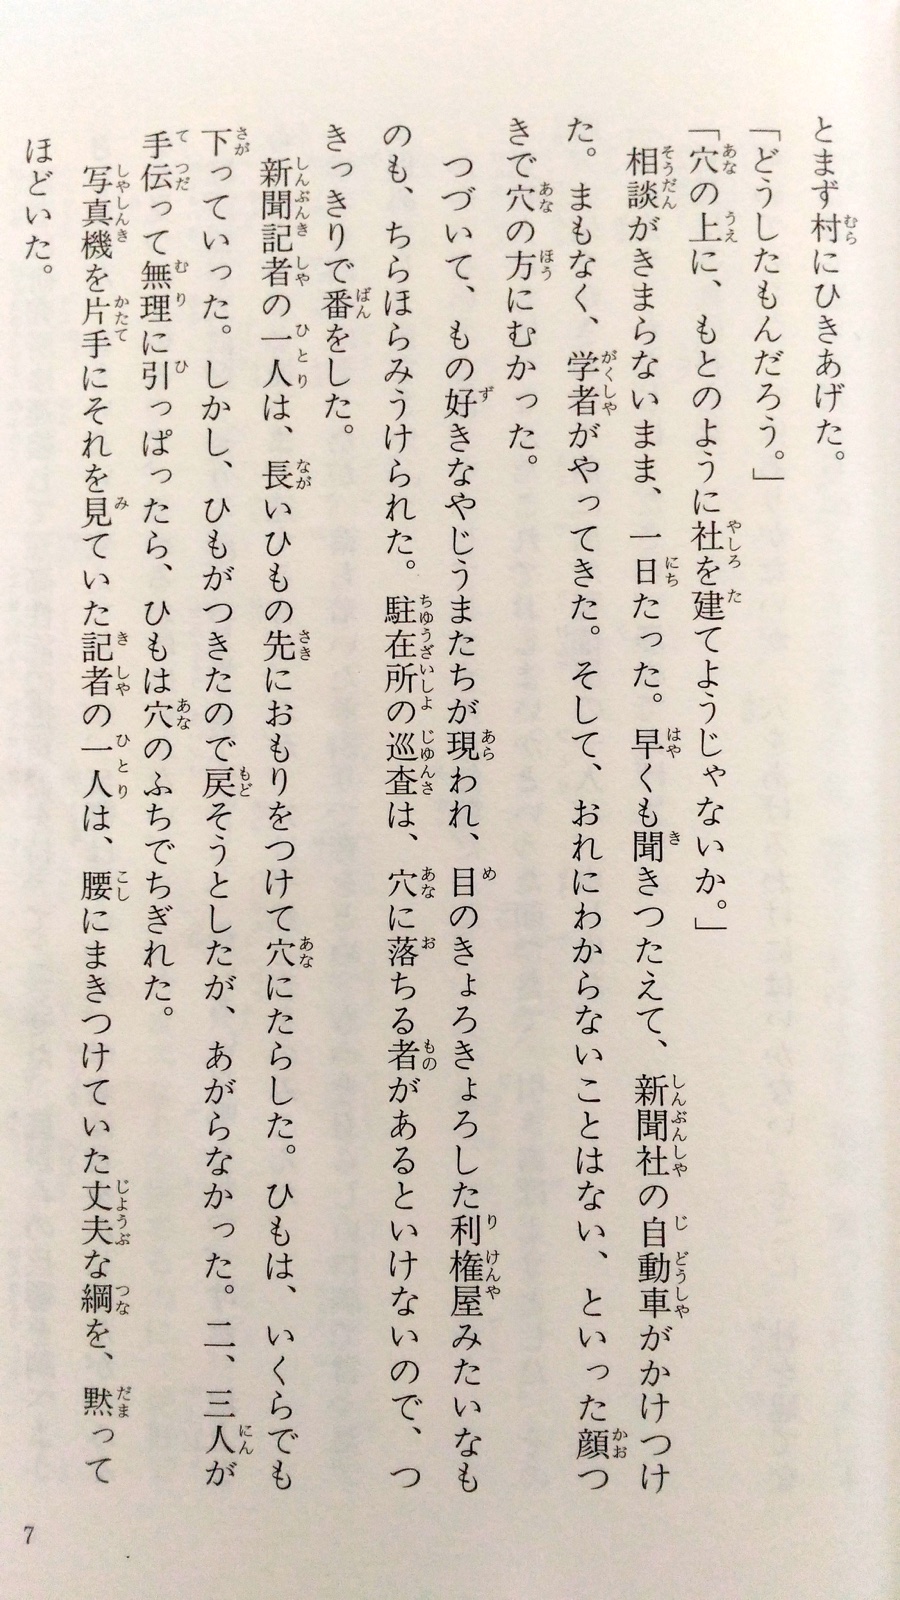 とまず村にひきあげた。
「どうしたもんだろう。」
「穴の上に、もとのように社を建てようじゃないか。」
相談がきまらないまま、一日たった。早くも聞きつたえて、新聞社の自動車がかけつけ
た。まもなく、学者がやってきた。そして、おれにわからないことはない、といった顔つ
きで穴の方にむかった。
つづいて、もの好きなやじうまたちが現われ、目のきょろきょろした利権屋みたいなも
のも、ちらほらみうけられた。駐在所の巡査は、穴に落ちる者があるといけないので、つ
きっきりで番をした。
新聞記者の一人は、長いひもの先におもりをつけて穴にたらした。ひもは、いくらでも
下っていった。しかし、ひもがつきたので戻そうとしたが、あがらなかった。二、三人が
手伝って無理に引っぱったら、ひもは穴のふちでちぎれた。
写真機を片手にそれを見ていた記者の一人は、腰にまきつけていた丈夫な綱を、黙って
ほどいた。
7